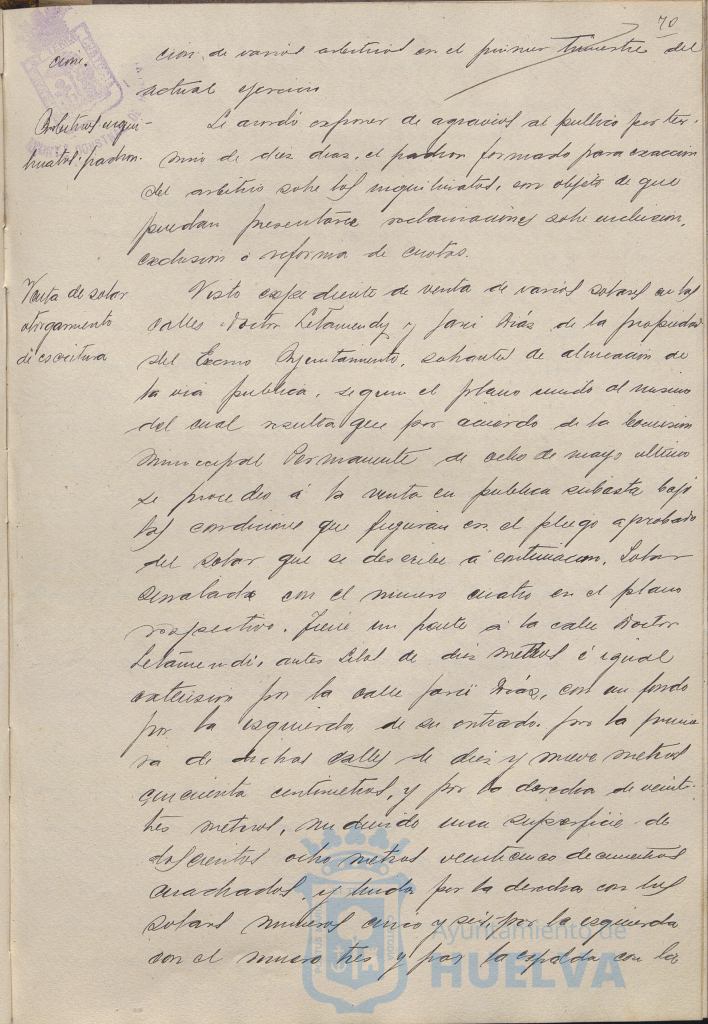 70
cion de varios arbitrios en el primer trimestre del
actual ejercicio
Arbitrios inqui-
linatos: padron.
Se acordó exponer de agravios al publico por ter-
mino de diez dias, el padron formado para exaccion
del arbitrio sobre los inquilinatos, con objeto de que
puedan presentarse reclamaciones sobre inclusion,
exclusion ó reforma de cuotas.
Venta de solar
otorgamiento
de escritura
Visto expediente de venta de varios solares en las
calles Doctor Letamendy y Diaz de la propiedad
del Excmo Ayuntamiento, sobrantes de alineacion de
la via publica, segun el plano unido al mismo
del cual resulta que por acuerdo de la Comision
Municipal Permanente de ocho de mayo ultimo
se procedio á la venta en publica subasta bajo
las condiciones que figuran en el pliego aprobado
del solar que se describe á continuacion. Solar
señalado con el numero cuatro en el plano
respectivo. Tiene un frente á la calle Doctor
Letamendi, antes de diez metros é igual
extension por la calle Diaz, con un fondo
por la izquierda de su entrada por la prime
ra de dichas calles de diez y nueve metros
cincuenta centimetros, y por la derecha de veinti-
tres metros, midiendo una superficie de
doscientos ocho metros veinticinco decimetros
cuadrados, y linda por la derecha con los
solares numeros cinco y seis, por la izquierda
con el numero tres y por la espalda con la
Ayuntamiento de
HUELVA